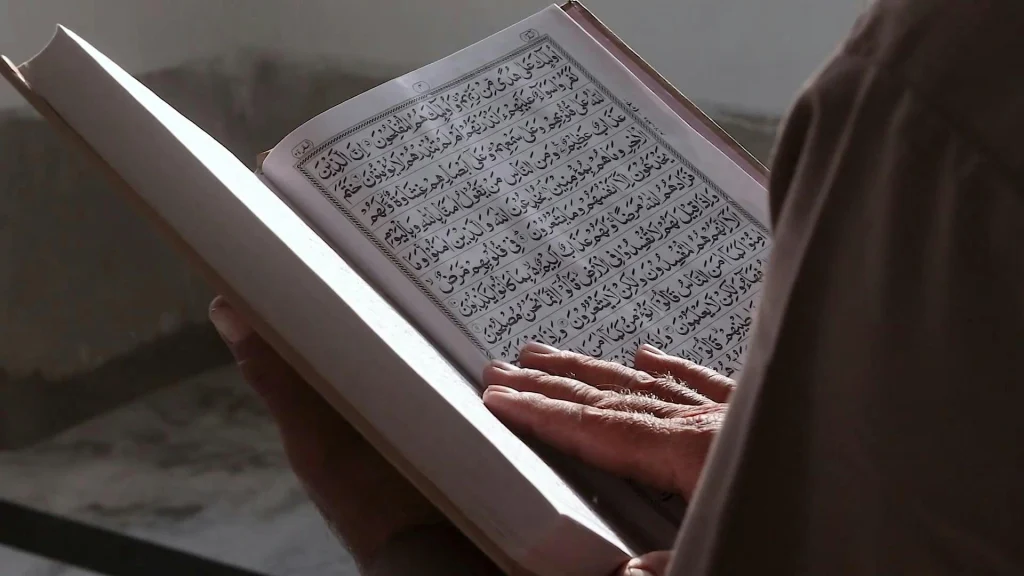 اُولٰٓئِكَ عَلٰى هُدًى مِّنْ رَّبِّهِمْ وَاُولٰٓئِكَ هُمُ الْمُفْلِحُوْنَ اِنَّ الَّذِيْنَ
كَفَرُوْا سَوَآءٌ عَلَيْهِمْ ءَاَنْذَرْتَهُمْ اَمْ لَمْ تُنْذِرْهُمْ لَا يُؤْمِنُوْنَ خَتَمَ
اللّٰهُ عَلٰى قُلُوْبِهِمْ وَعَلٰى سَمْعِهِمْ وَعَلٰٓى اَبْصَارِهِمْ غِشَاوَةٌ وَّلَهُمْ
عَذَابٌ عَظِيْمٌ وَمِنَ النَّاسِ مَنْ يَّقُوْلُ اٰمَنَّا بِاللّٰهِ وَبِالْيَوْمِ
الْاٰخِرِ وَمَا هُمْ بِمُؤْمِنِيْنَ يُخٰدِعُوْنَ اللّٰهَ وَالَّذِيْنَ اٰمَنُوْا وَمَا
يَخْدَعُوْنَ اِلَّآ اَنْفُسَهُمْ وَمَا يَشْعُرُوْنَ فِيْ قُلُوْبِهِمْ مَّرَضٌ
فَزَادَهُمُ اللّٰهُ مَرَضًا وَلَهُمْ عَذَابٌ اَلِيْمٌ بِمَا كَانُوْا يَكْذِبُوْنَ
وَاِذَا قِيْلَ لَهُمْ لَا تُفْسِدُوْا فِى الْاَرْضِ قَالُوْٓا اِنَّمَا نَحْنُ مُصْلِحُوْنَ
اِنَّهُمْ هُمُ الْمُفْسِدُوْنَ وَلٰكِنْ لَّا يَشْعُرُوْنَ
كَمَآ اٰمَنَ النَّاسُ قَالُوْٓا اَنُؤْمِنُ كَمَآ اٰمَنَ
لَّا يَعْلَمُوْنَ